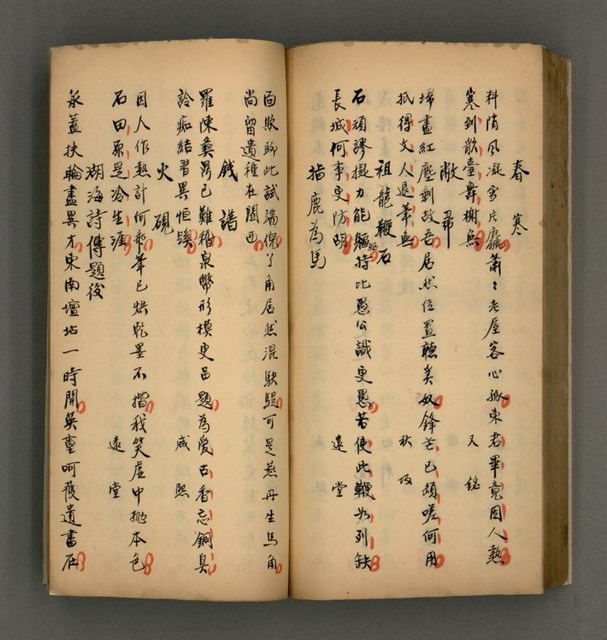 春寒
料峭風凝雪片麤蕭々老屋客心孤東君畢竟因人熱
寒到歌臺舞榭無　又銘
敝帚
埽盡紅塵剩故吾居然位置聽奚奴鋒芒已頹嗟何用
抵得文人退筆無　秋
祖龍鞭石
石頑謬擬力能驅持比愚公識更愚若使此鞭如列缺
長城何事更防胡　遠堂
指鹿為馬
面欺聊此試端倪了角居然混駃騠可是燕丹生馬角
尚留遺種在關西
錢譜
羅陳彝器已難稽泉幣形模更品題為愛古香忘銅臭
詅痴結習異恒蹊　咸熙
火硯
因人作熱計何乖筆已烘乾墨不揩我笑虛中拋本色
石田原是冷生涯　遠堂
湖海詩傳題後
永蓋扶輪盡異才東南壇坫一時開吳重呵護遺書在